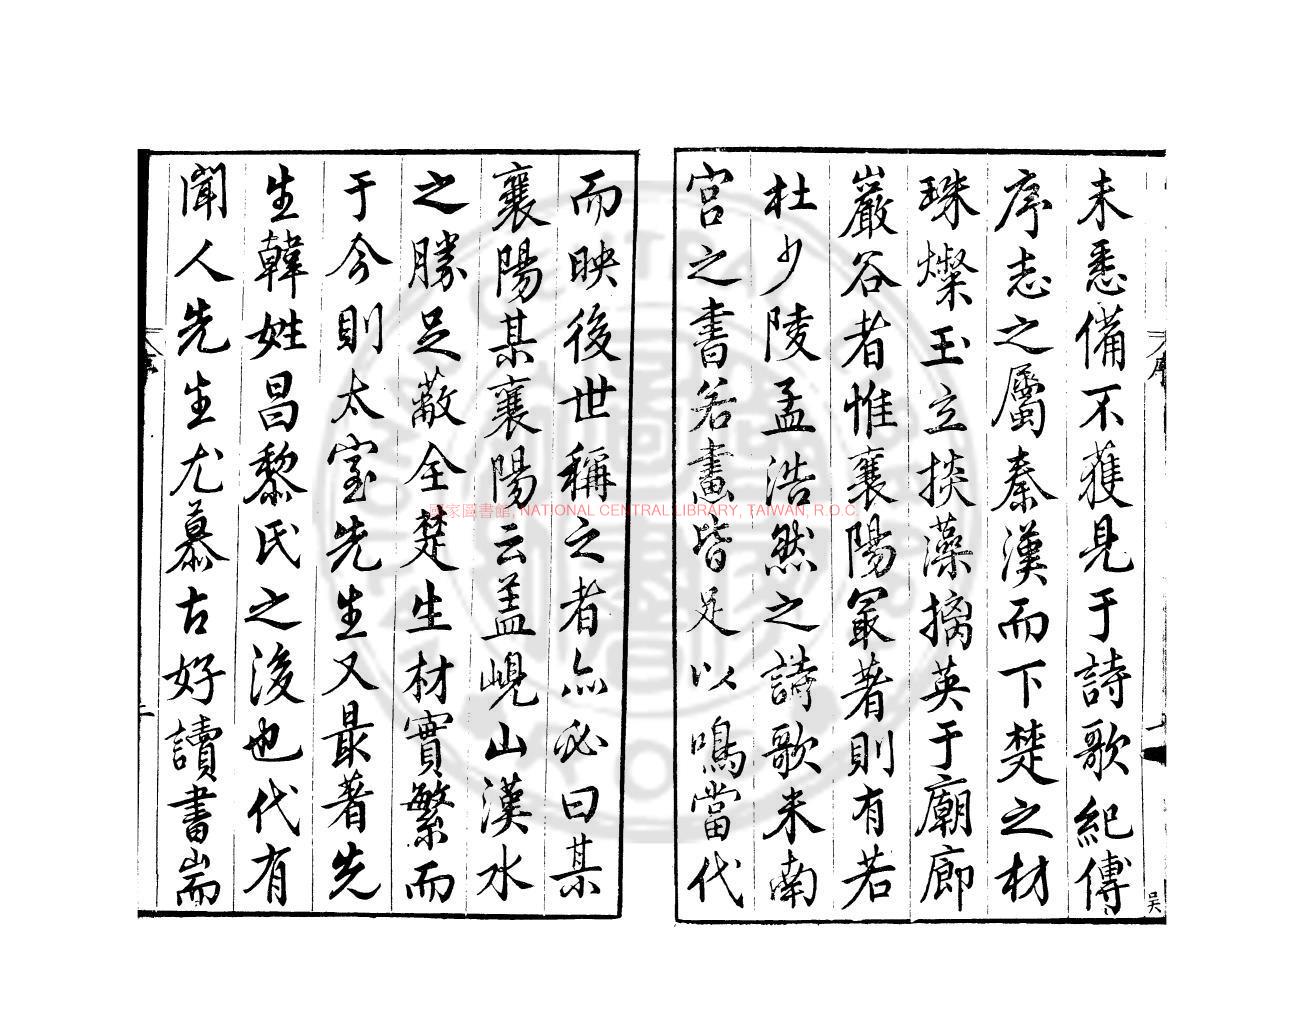 未悉備不獲見于詩歌紀傳
序志之屬秦漢而下楚之材
珠燦玉立掞藻摛英于廟廊
巖谷者惟襄陽冣著則有若
杜少陵孟浩然之詩歌米南
宮之書若畫皆足以鳴當代
而映後世稱之者亦必曰某
襄陽某襄陽云蓋峴山漢水
之勝足蔽全楚生材實繁而
于今則太室先生又最著先
生韓姓昌黎氏之後也代有
聞人先生尤慕古好讀書耑
吳
國家圖書館, NATIONAL CENTRAL LIBRARY, TAIWAN, R.O.C.